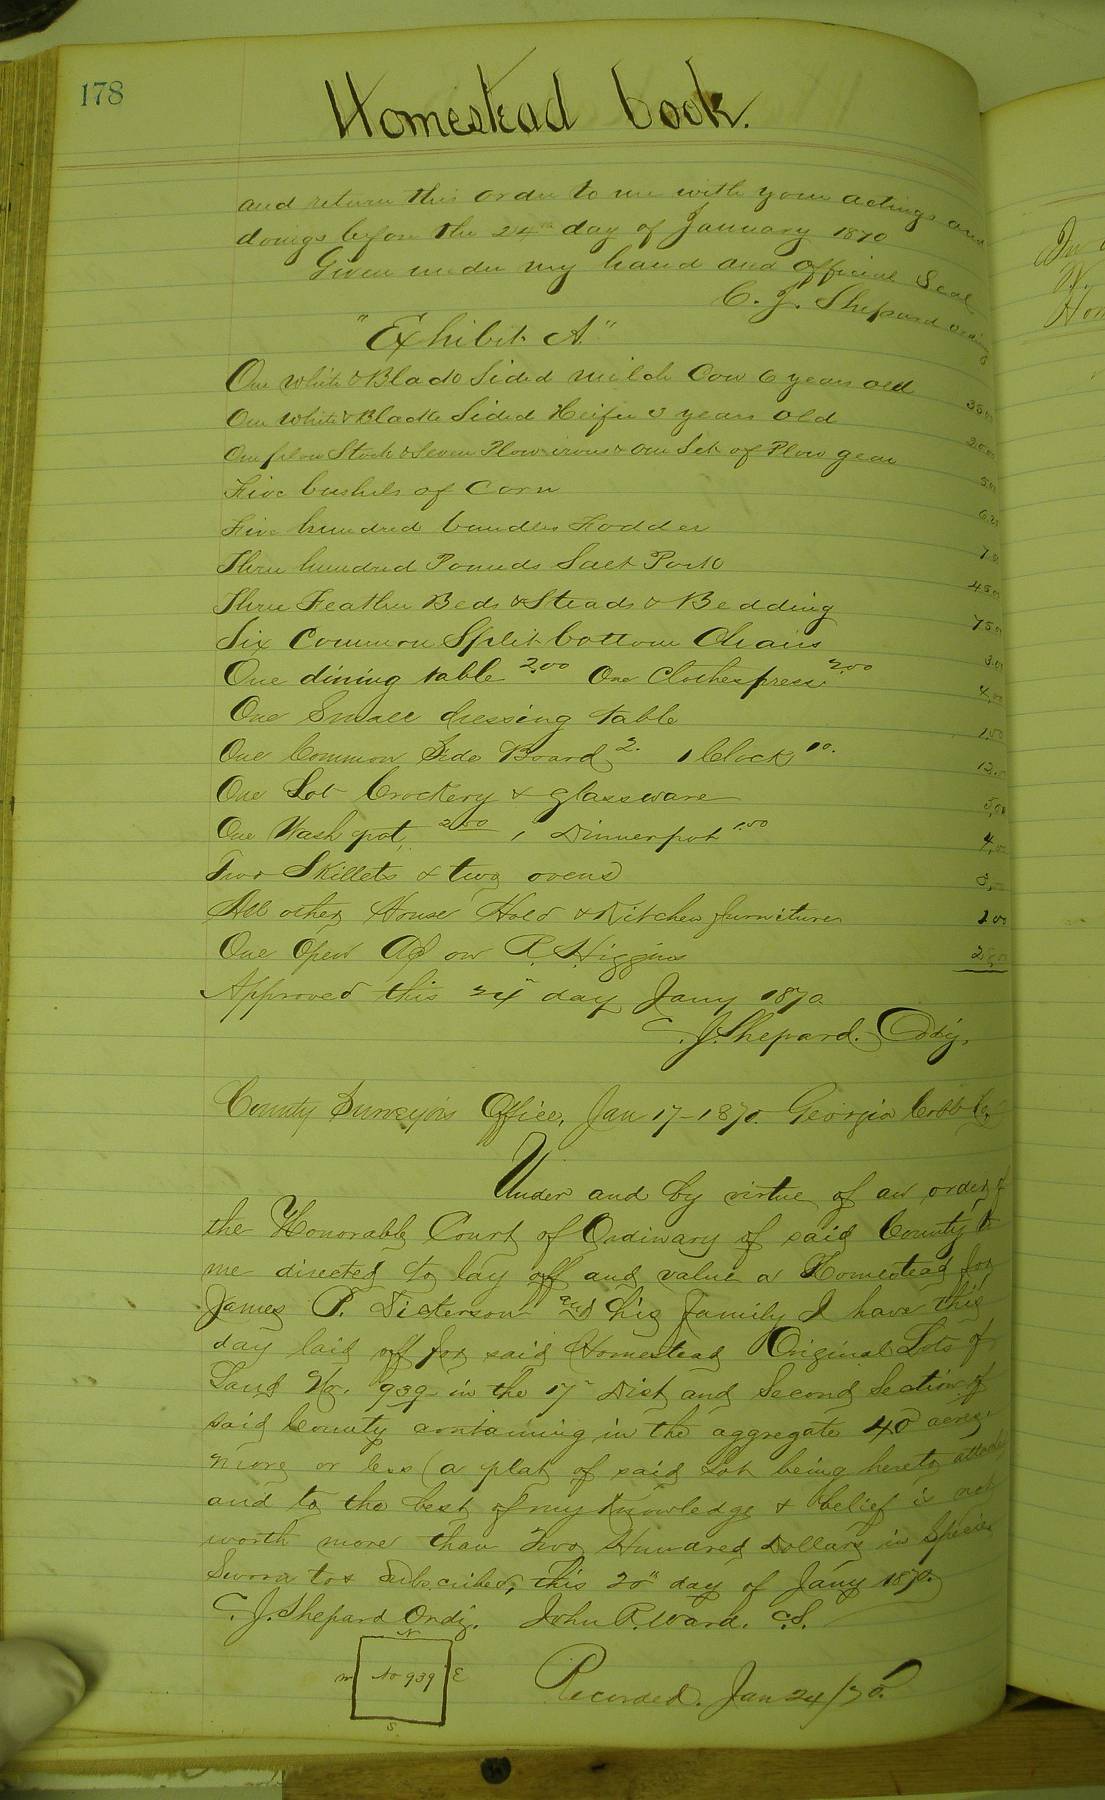 178
Homestead book.
and return this order to me with your actings and
doings before the 24th day of January 1870
Given under my hand and official Seal
C. J. Shepard
"Exhibit A"
One white & Black Sided milch Cow 6 years old 35.00
One white & Black Sided Heifer 3 years old 20.00
One plow Stock & Seven Plow irons & one Set of Plow gear 5.00
Five bushels of Corn 6.25
Five hundred bundles Fodder
Three hundred Pounds Salt Pork 45.00
Three Feather Beds & Steads & Bedding 75.00
Six Common Split bottom Chairs 3.00
One dining table 2.00 One Clothespress 2.00 4.00
One Small dressing table 1.00
One Common Side Board 2. 1 Clock 10. 12.00
One Lot Crockery & glassware 5.00
One Wash pot, 2.50 1 Dinnerpot 1.50 4.00
Two Skillets & two ovens 3.00
All other House Hold & Kitchen furniture
One Open A/c on R. Higgins
Approved this 24" day Jany 1870
C. J. Shepard. Ordy.
County Surveyors Office, Jan 17-1870. Georgia Cobb Co.
Under and by virtue of an order of
the Honorable Court of Ordinary of said County to
me directed to lay off and value a Homestead for
James P. and his family I have this
day laid off for said Homestead Original Lots of
Land No. 939 in the 17" Dist and Second Section of
said County containing in the aggregate 40 acres
more or less (a plat of said Lot being hereto attached
and to the best of my knowledge & belief is not
worth more than Two Hundred Dollars in Specie
Sworn to & Subscribed, this 20" day of Jany 1870.
C. J. Shepard Ordy. John R. Ward. C.S.
N
W No 939 E
S
Recorded. Jan 24/70.